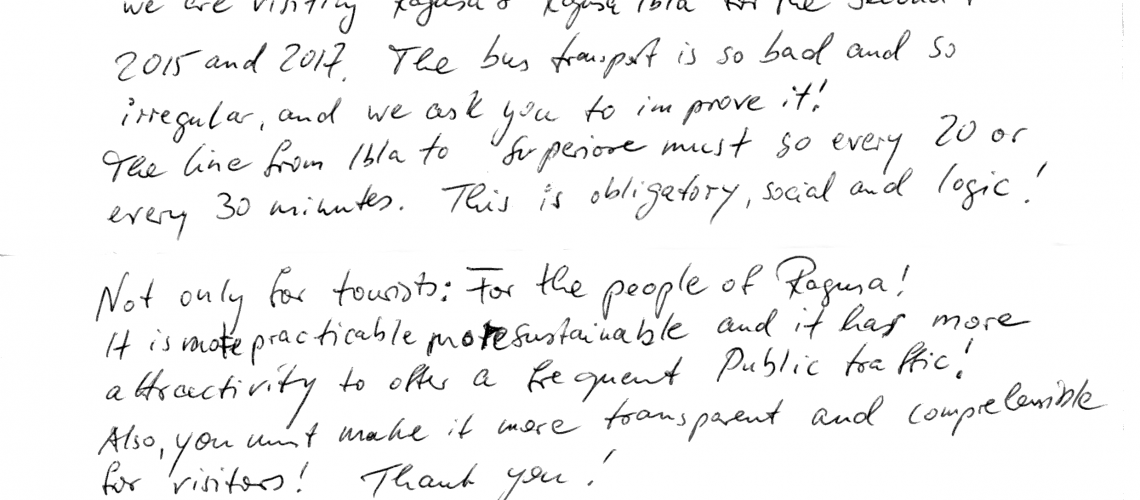 we are visiting Ragusa & Ragusa Ibla for the second
2015 and 2017. The bus transport is so bad and so
irregular, and we ask you to improve it!
The line from Ibla to Superiore must go every 20 or
every 30 minutes. This is obligatory, social and logic!
Not only for tourists: For the people of Ragusa!
It is more practicable more sustainable and it has more
attractivity to offer a frequent Public traffic!
Also, you must make it more transparent and comprehensible
for visitors! Thank you!